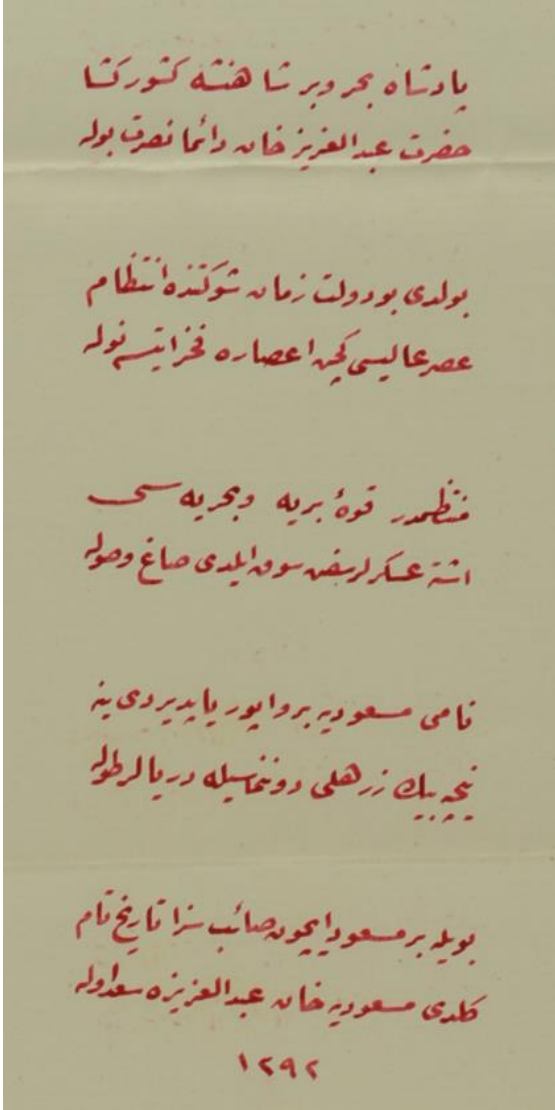 پادشاه بحر و بر شاهنشه كشوركشا
حضرت عبد العزيز خان دائما نصرت بوله
بولدى بو دولت زمان شوكتنده انتظام
عصر عاليسى كچن اعصاره فخر ايتسه نوله
منتظمدر قوۀ بريه و بحريه سى
اشته عسكرلر سوق ايلدى صاغ وصوله
نامى مسعوديه بر واپور ياپديردى ينه
نيجه بيك زرهلى دوننماسيله دريالر طوله
بويله بر مسعود ايچون صائب سزا تاريخ تام
كلدى مسعوديه خان عبد العزيزه سعد اوله
١٢٩٢